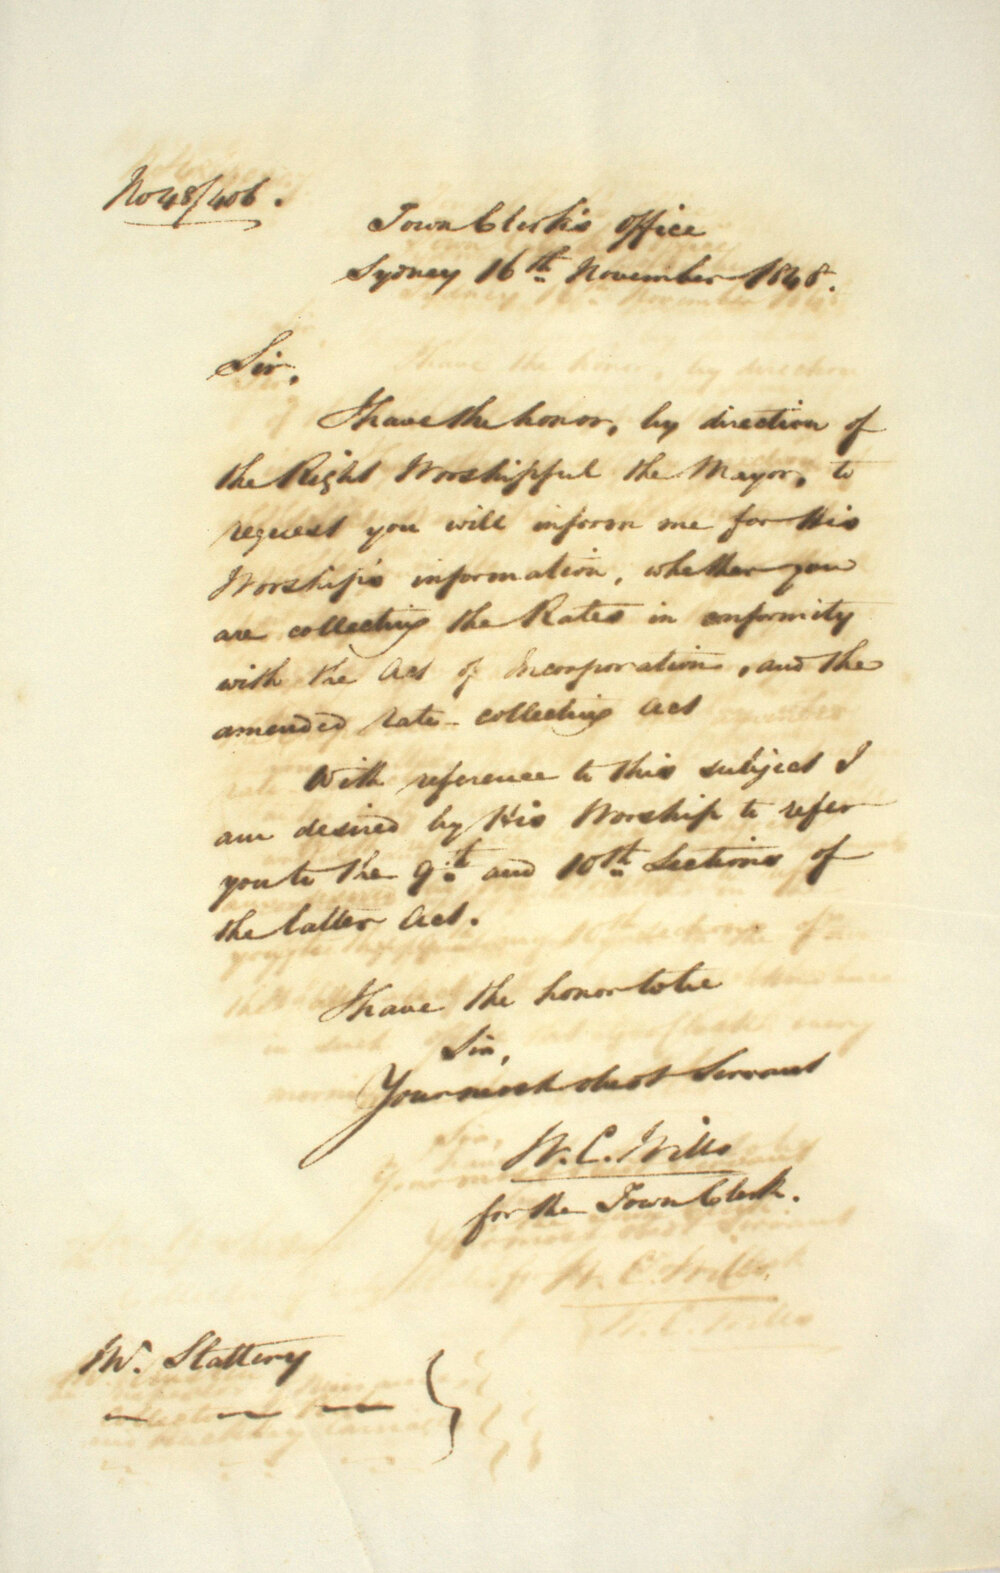 No 48/406.
Town Clerk's Office
Sydney 16th November 1848.
Sir,
I have the honor, by direction of
the Right Worshipful the Mayor, to
request you will inform me for His
Worship's information, whether you
are collecting the Rates in conformity
with the Act of Incorporation, and the
amended rate-collecting Act
With reference to this subject I
am desired by His Worship to refer
you to the 9th and 10th Sections of
the latter Act.
I have the honor to be
Sir,
Your most obedt Servant
W. C. Wills
for the Town Clerk.
Mr. Slattery